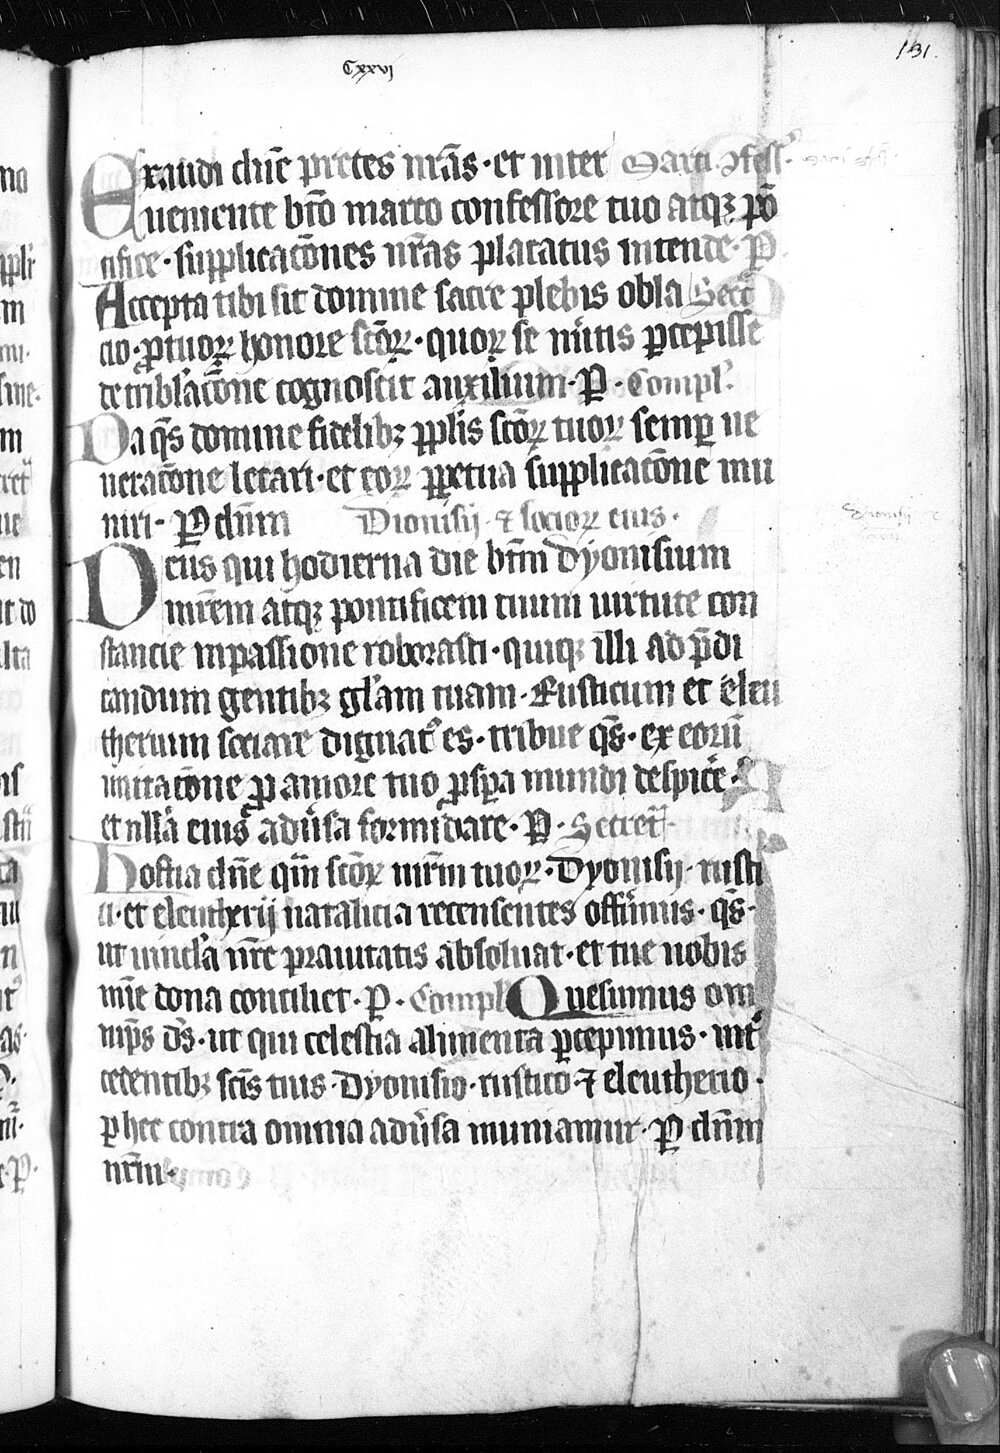 Cxxvi
131.
Exaudi dn̄e preces nr̄as · et inter Marci ꝯfess̄.
ueniente bt̄o marco confessore tuo atqꝫ pō
tifice · supplicatōnes nr̄as placatus intende · P̱.
Accepta tibi sit domine sacre plebis obla Secr̄
cio · ꝓ tuoꝝ honore sc̄oꝝ · quoꝝ se mītis ꝑcepisse
de tribl̓atōne cognoscit auxilium · P̱ · Compl̓.
Da qs̄ domine fidelibꝫ ppl̓is sc̄oꝝ tuoꝝ semꝑ ue
neratōne letari · et eoꝝ ꝑpetua supplicatōne mu
niri · P̱ dn̄m Dionisij · ⁊ socioꝝ eius ·
Deus qui hodierna die bt̄m dyonisium
mr̄em atqꝫ pontificem tuum uirtute con
stancie in passione roborasti · quiqꝫ illi ad p̄di
candum gentibꝫ gl̓am tuam · Rusticum et eleu
therium sociare dignat᷒ es · tribue qs̄ · ex eorū
imitatōne ꝓ amore tuo ꝓsꝑa mundi despicẽ ·
et nll̓a eius adũsa formidare · P̱ · Secret̄
Hostia dn̄e qm̄ sc̄oꝝ mr̄m tuoꝝ · Dyonisij · rusti
ci · et eleutherij natalicia recensentes offim̃us · qs̄ ·
ut uincl̓a nr̄e prauitatis absoluat · et tue nobis
mīe dona conciliet · P̱ · Compl̓ Quesumus om
nip̄s ds̄ · ut qui celestia alimenta ꝑcepimus · int̄
cedentibꝫ sc̄is tuis · Dyonisio · rustico ⁊ eleutherio ·
ꝑ hec contra omnia adũsa muniamur · P̱ dn̄m
nr̄m ·